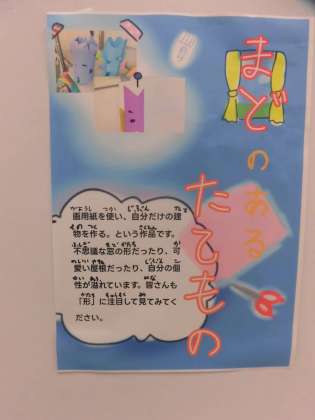 まどのある
たてもの
画用紙を使い、自分だけの建
物を作る。という作品です。
不思議な窓の形だったり、可
愛い屋根だったり、自分の個
性が溢れています。皆さんも
「形」に注目して見てみてく
ださい。